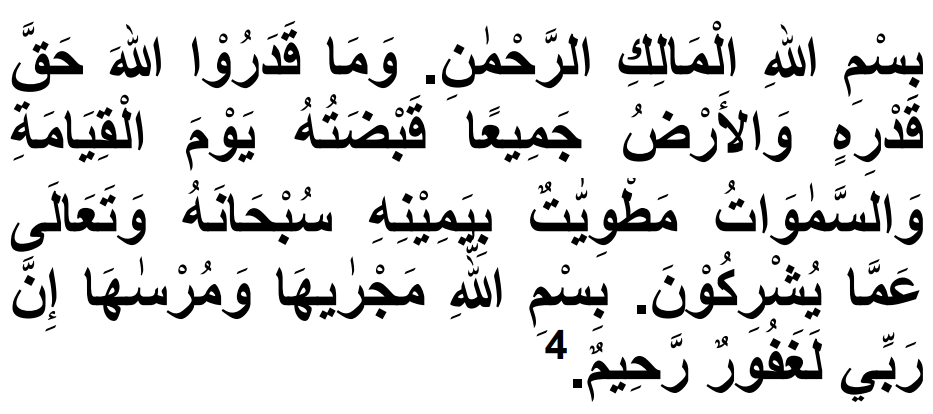 بِسْمِ اللهِ الْمَالِكِ الرَّحْمٰنِ. وَمَا قَدَرُوْا اللهَ حَقَّ
قَدْرِهِ وَالأَرْضُ جَمِيعًا قَبْضَتُهُ يَوْمَ الْقِيَامَةِ
وَالسَّمٰوَاتُ مَطْوِيّٰتٌ بِيَمِيْنِهِ سُبْحَانَهُ وَتَعَالَى
عَمَّا يُشْرِكُوْنَ. بِسْمِ اللهِ مَجْرٰيهَا وَمُرْسٰهَا إِنَّ
رَبِّي لَغَفُوَرٌ رَّحِيمٌ.4